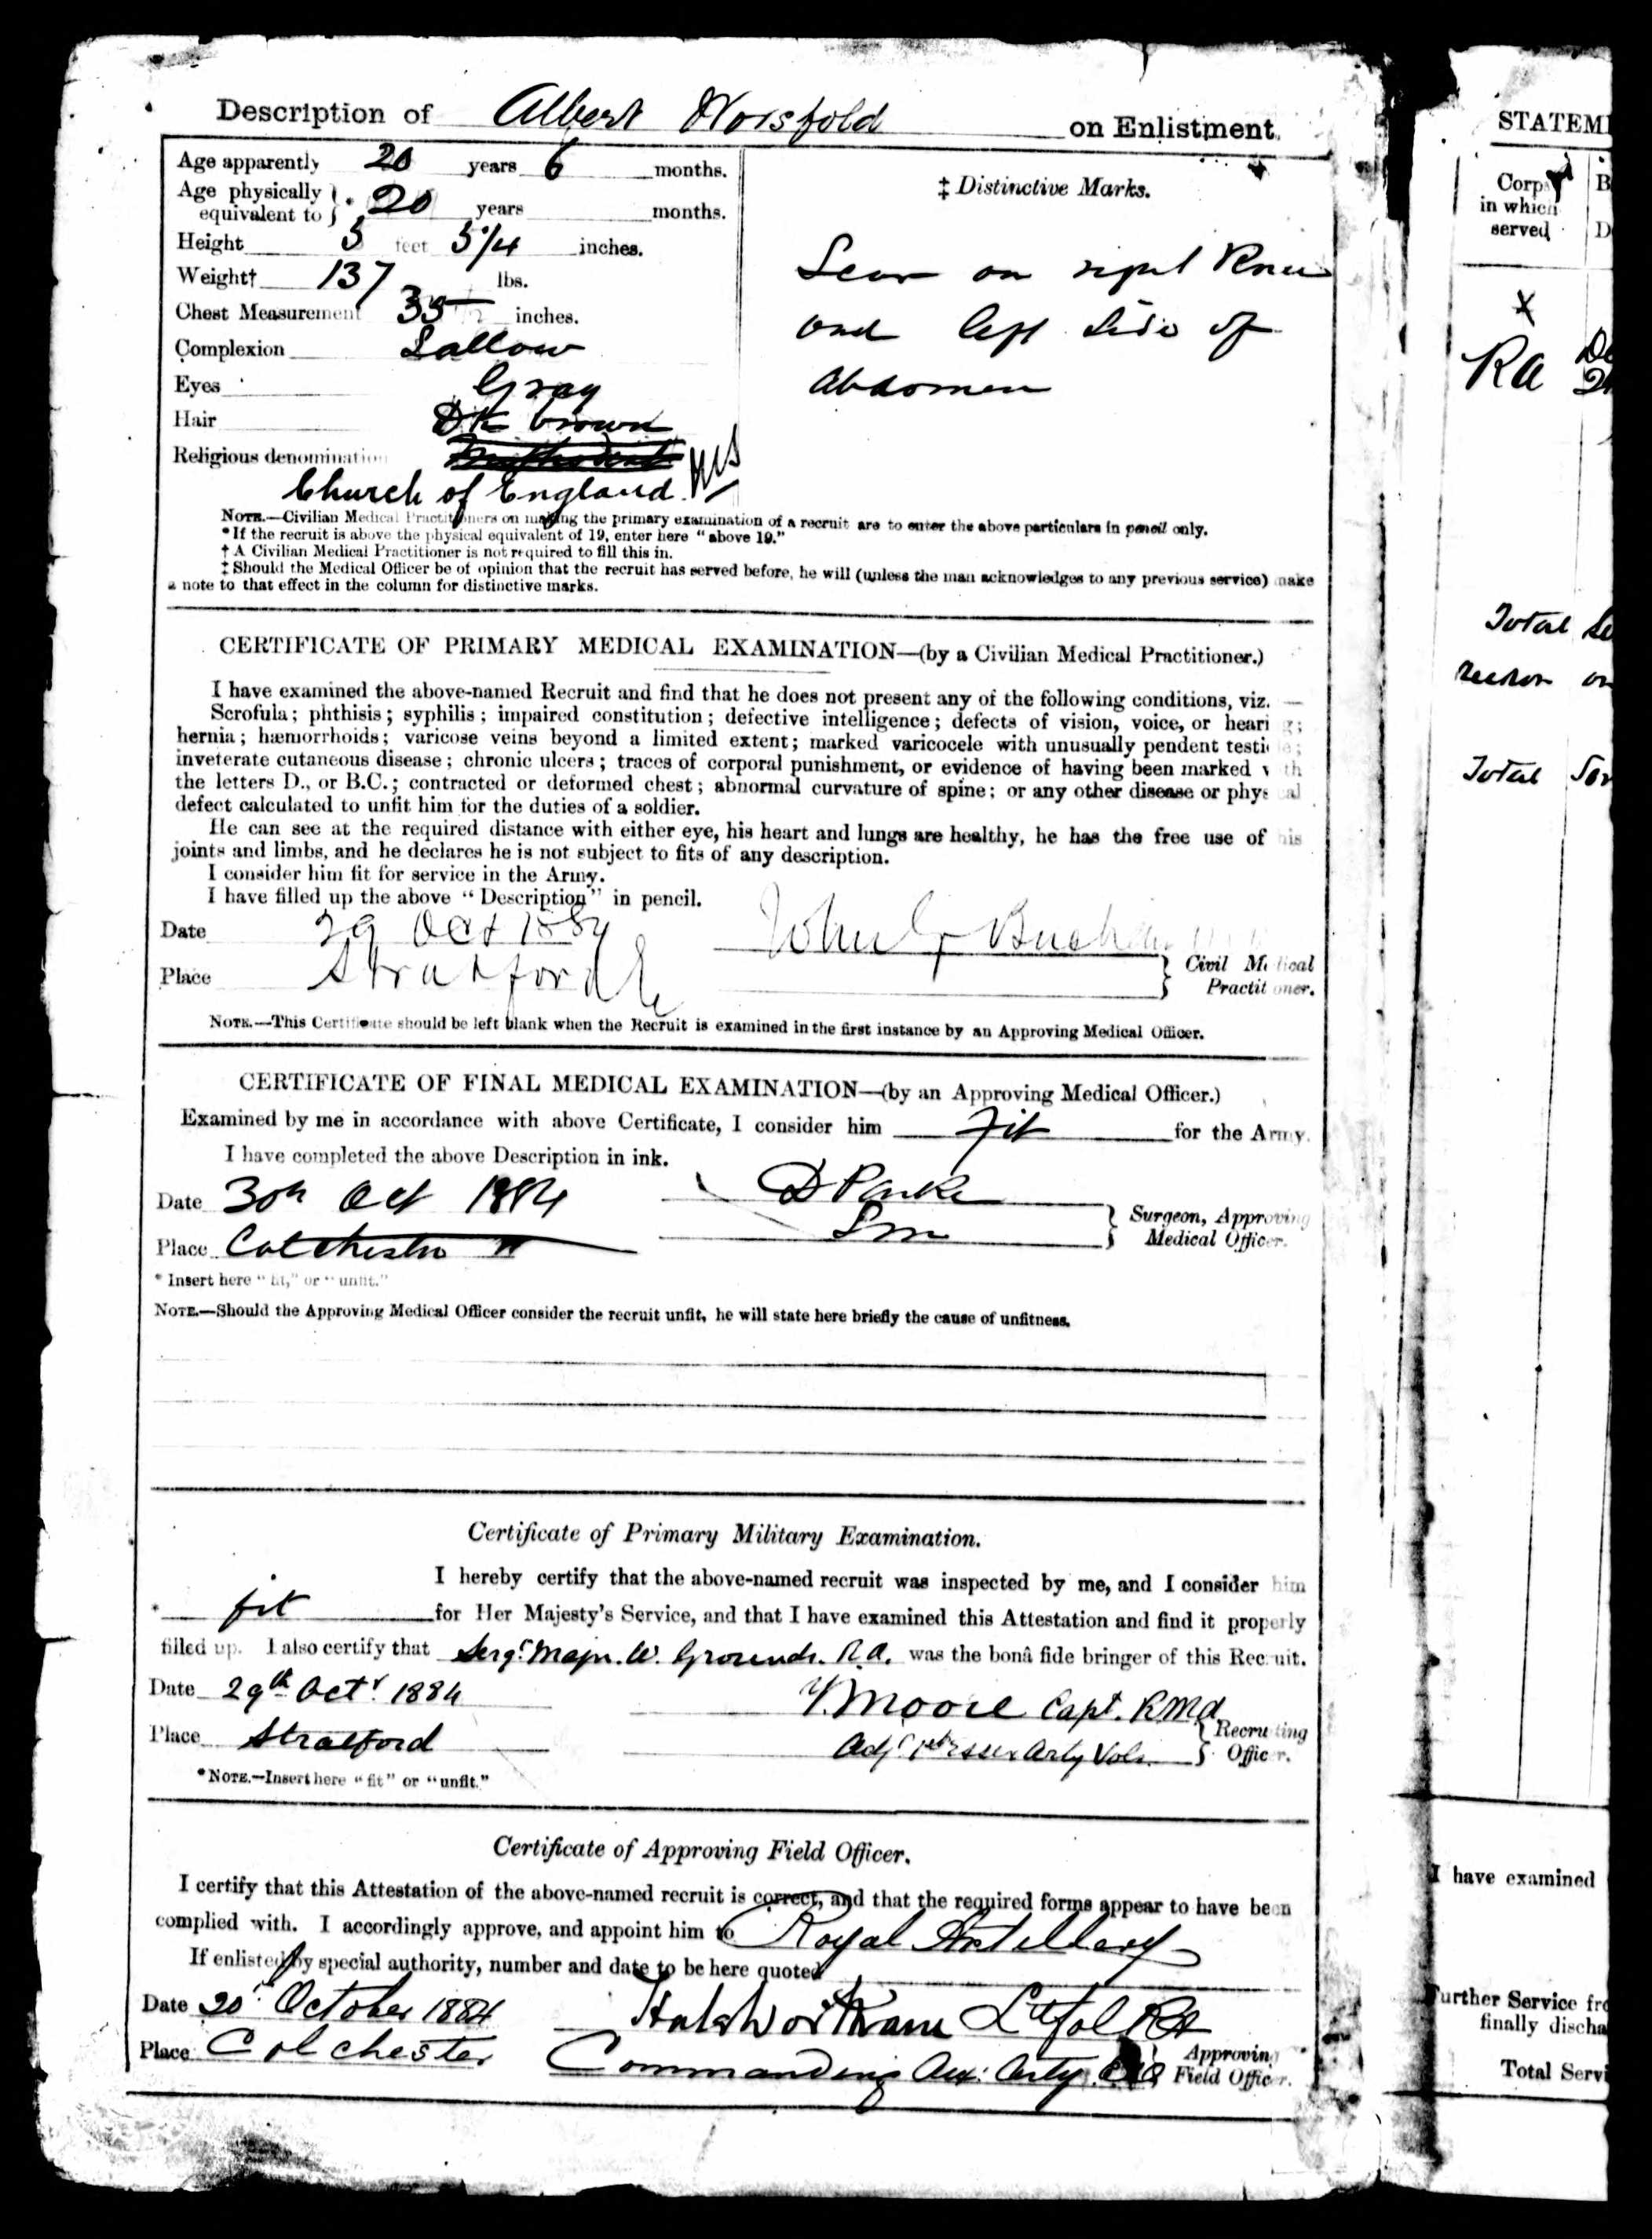 Description of Albert Horsfold on Enlistment.
Age apparently 20 years 6 months.
Age physically equivalent to } * 20 years months.
Height 5 feet 5 1/4 inches.
Weight† 137 lbs.
Chest Measurement 35 inches.
Complexion Sallow
Eyes Gray
Hair Dk brown
Religious denomination
Church of England
‡ Distinctive Marks.
Scar on right Knee
and left side of
Abdomen
NOTE.—Civilian Medical Practitioners on making the primary examination of a recruit are to enter the above particulars in pencil only.
* If the recruit is above the physical equivalent of 19, enter here "above 19."
† A Civilian Medical Practitioner is not required to fill this in.
‡ Should the Medical Officer be of opinion that the recruit has served before, he will (unless the man acknowledges to any previous service) make
a note to that effect in the column for distinctive marks.
CERTIFICATE OF PRIMARY MEDICAL EXAMINATION—(by a Civilian Medical Practitioner.)
I have examined the above-named Recruit and find that he does not present any of the following conditions, viz. —
Scrofula; phthisis; syphilis; impaired constitution; defective intelligence; defects of vision, voice, or hearing;
hernia; hæmorrhoids; varicose veins beyond a limited extent; marked varicocele with unusually pendent testicle;
inveterate cutaneous disease; chronic ulcers; traces of corporal punishment, or evidence of having been marked with
the letters D., or B.C.; contracted or deformed chest; abnormal curvature of spine; or any other disease or physical
defect calculated to unfit him for the duties of a soldier.
He can see at the required distance with either eye, his heart and lungs are healthy, he has the free use of his
joints and limbs, and he declares he is not subject to fits of any description.
I consider him fit for service in the Army.
I have filled up the above "Description" in pencil.
Date 29 Oct 1884 John G
Place Stratford E
Civil Medical
Practitioner.
NOTE.—This Certificate should be left blank when the Recruit is examined in the first instance by an Approving Medical Officer.
CERTIFICATE OF FINAL MEDICAL EXAMINATION—(by an Approving Medical Officer.)
Examined by me in accordance with above Certificate, I consider him fit for the Army.
I have completed the above Description in ink.
Date 30th Oct 1884 D Parke
Place Colchester
Surgeon, Approving
Medical Officer.
* Insert here "fit," or "unfit."
NOTE.—Should the Approving Medical Officer consider the recruit unfit, he will state here briefly the cause of unfitness.
Certificate of Primary Military Examination.
I hereby certify that the above-named recruit was inspected by me, and I consider him
* fit for Her Majesty's Service, and that I have examined this Attestation and find it properly
filled up. I also certify that Sergt. Majr. W. Grounds. R.A. was the bonâ fide bringer of this Recruit.
Date 29th Octr. 1884 Moore Capt. RMA
Place Stratford Adjt 1st Essex Arty Vols.
Recruiting
Officer.
*NOTE.—Insert here "fit" or "unfit."
Certificate of Approving Field Officer.
I certify that this Attestation of the above-named recruit is correct, and that the required forms appear to have been
complied with. I accordingly approve, and appoint him to Royal Artillery
If enlisted by special authority, number and date to be here quoted
Date 30 October 1884 Lt Col RA
Place Colchester Commanding Aux: Arty.
Approving
Field Officer.
STATEM
Corps
in which
served
B
D
RA
Total Se
Total
I have examined
Further Service fro
finally discha
Total Servi